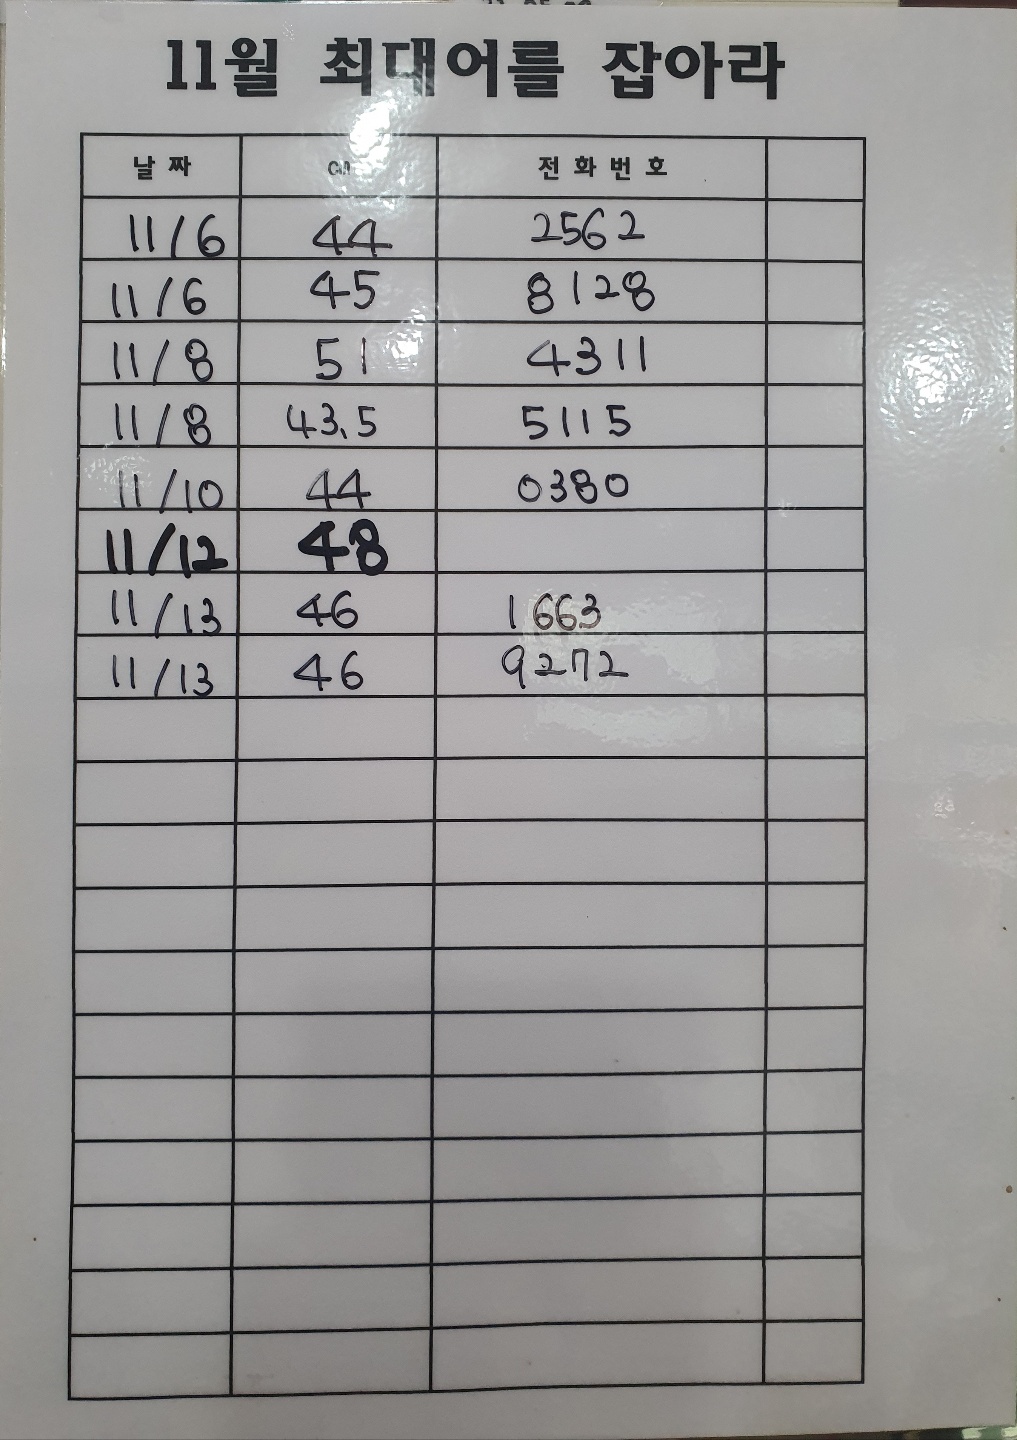 11월 최대어를 잡아라
날짜 cm 전화번호
11/6 44 2562
11/6 45 8128
11/8 51 4311
11/8 43.5 5115
11/10 44 0380
11/12 48
11/13 46 1663
11/13 46 9272